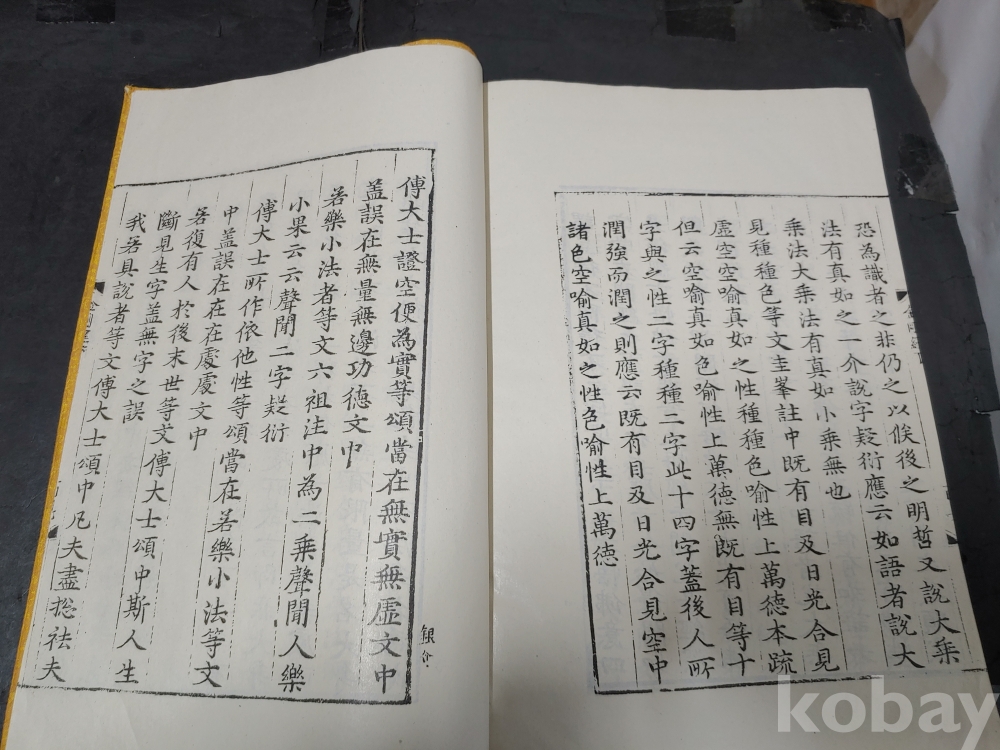 恐為識者之非仍之以俟後之明哲又說大乘
法有真如之一介說字疑衍應云如語者說大
乘法大乘法有真如小乘無也
見種種色等文圭峯註中既有目及日光合見
虛空空喻真如之性種種色喻性上萬德本疏
但云空喻真如色喻性上萬德無既有目等十
字與之性二字種種二字此十四字蓋後人所
潤強而潤之則應云既有目及日光合見空中
諸色空喻真如之性色喻性上萬德
傅大士證空便為實等頌當在無實無虛文中
盖誤在無量無邊功德文中
若樂小法者等文六祖注中為二乘聲聞人樂
小果云云聲聞二字疑衍
傅大士所作依他性等頌當在若樂小法等文
中盖誤在在在處處文中
若復有人於後末世等文傅大士頌中斯人生
斷見生字盖無字之誤
我若具說者等文傅大士頌中凡夫盡捴祛夫
kobay